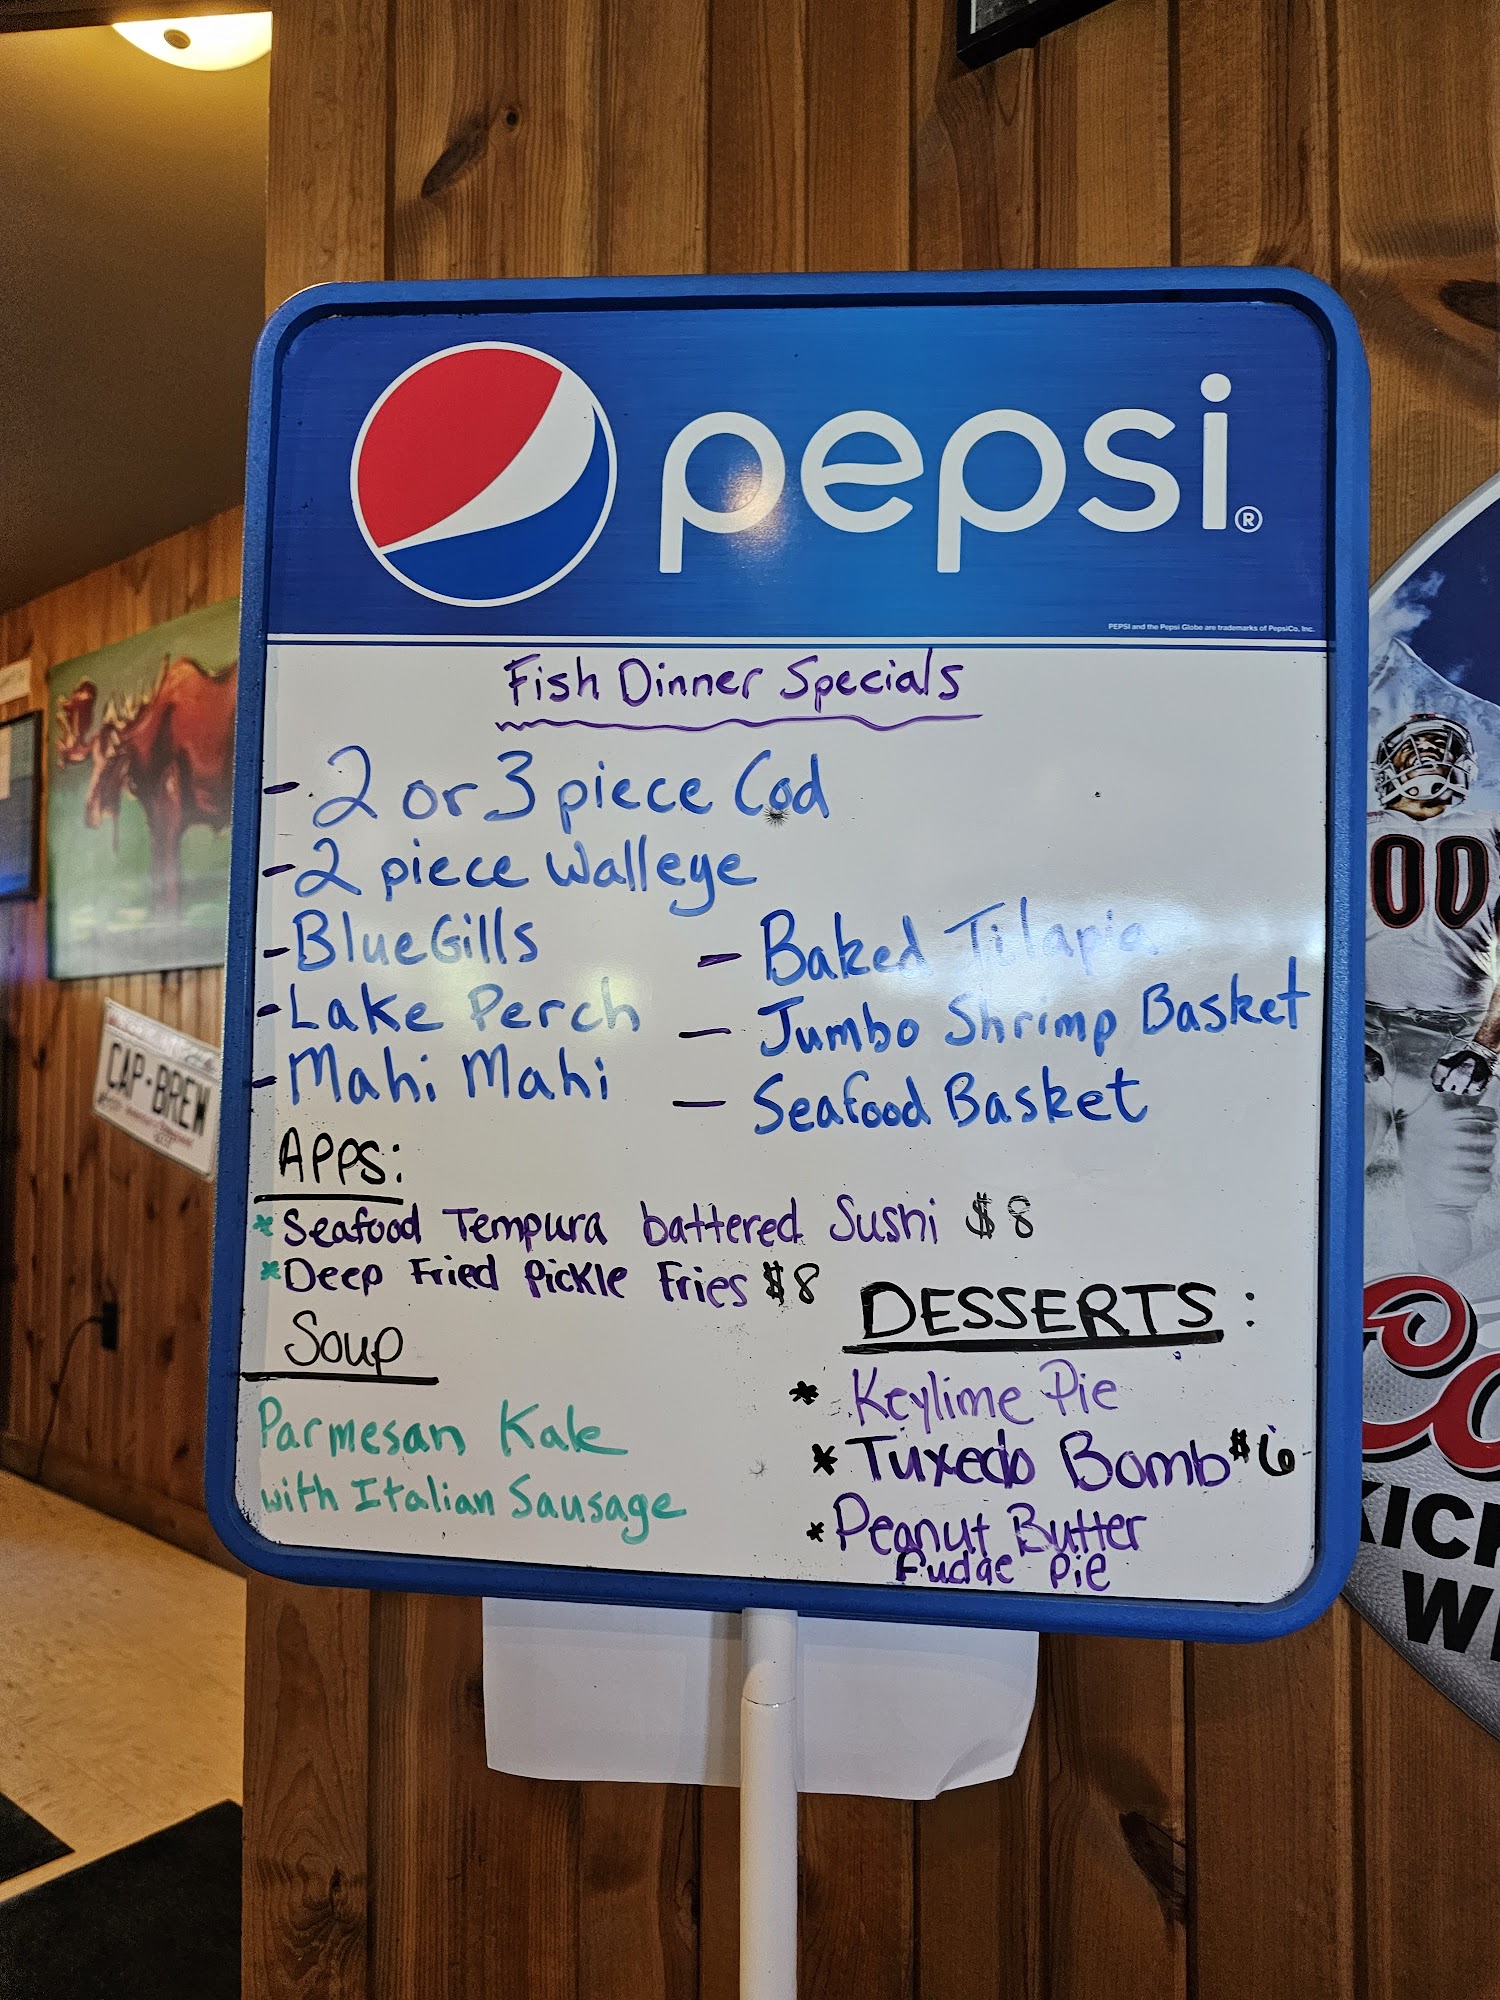 pepsi®
PEPSI and the Pepsi Globe are trademarks of PepsiCo, Inc.
Fish Dinner Specials
- 2 or 3 piece Cod
- 2 piece Walleye
- BlueGills
- Lake Perch
- Mahi Mahi
- Baked Tilapia
- Jumbo Shrimp Basket
- Seafood Basket
APPS:
* Seafood Tempura battered Sushi $8
* Deep Fried Pickle Fries $8
Soup
Parmesan Kale
with Italian Sausage
DESSERTS:
* Keylime Pie
* Tuxedo Bomb $6
* Peanut Butter
Fudge Pie
CAP-BREW
00